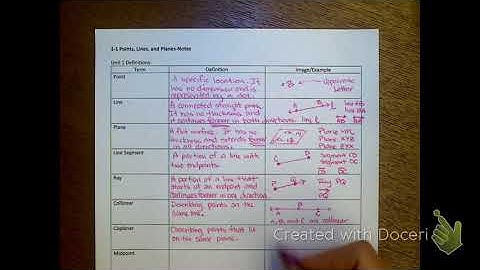 1-1 Points, Lines, and Planes-Notes
Unit 1 Definitions:
Term Definition Image/Example
Point A specific location. It
has no dimension and is
represented by a dot.
B
Letter
Line A connected straight
It has no thickness and
continues forever in both directions. line
Plane A flat surface. It has no
thickness and extends forever
in all directions.
Plane
Plane XYZ
Plane
Line Segment A portion of a line with
two endpoints.
Segment CD
Segment DC
Ray A portion of a line that
starts at an endpoint and
continues forever in one direction.
Ray PQ
Collinear Describing points on
the same line.
A, B, and C are collinear
Coplanar Describing points that lie
on the same plane.
Midpoint
Created with Doceri